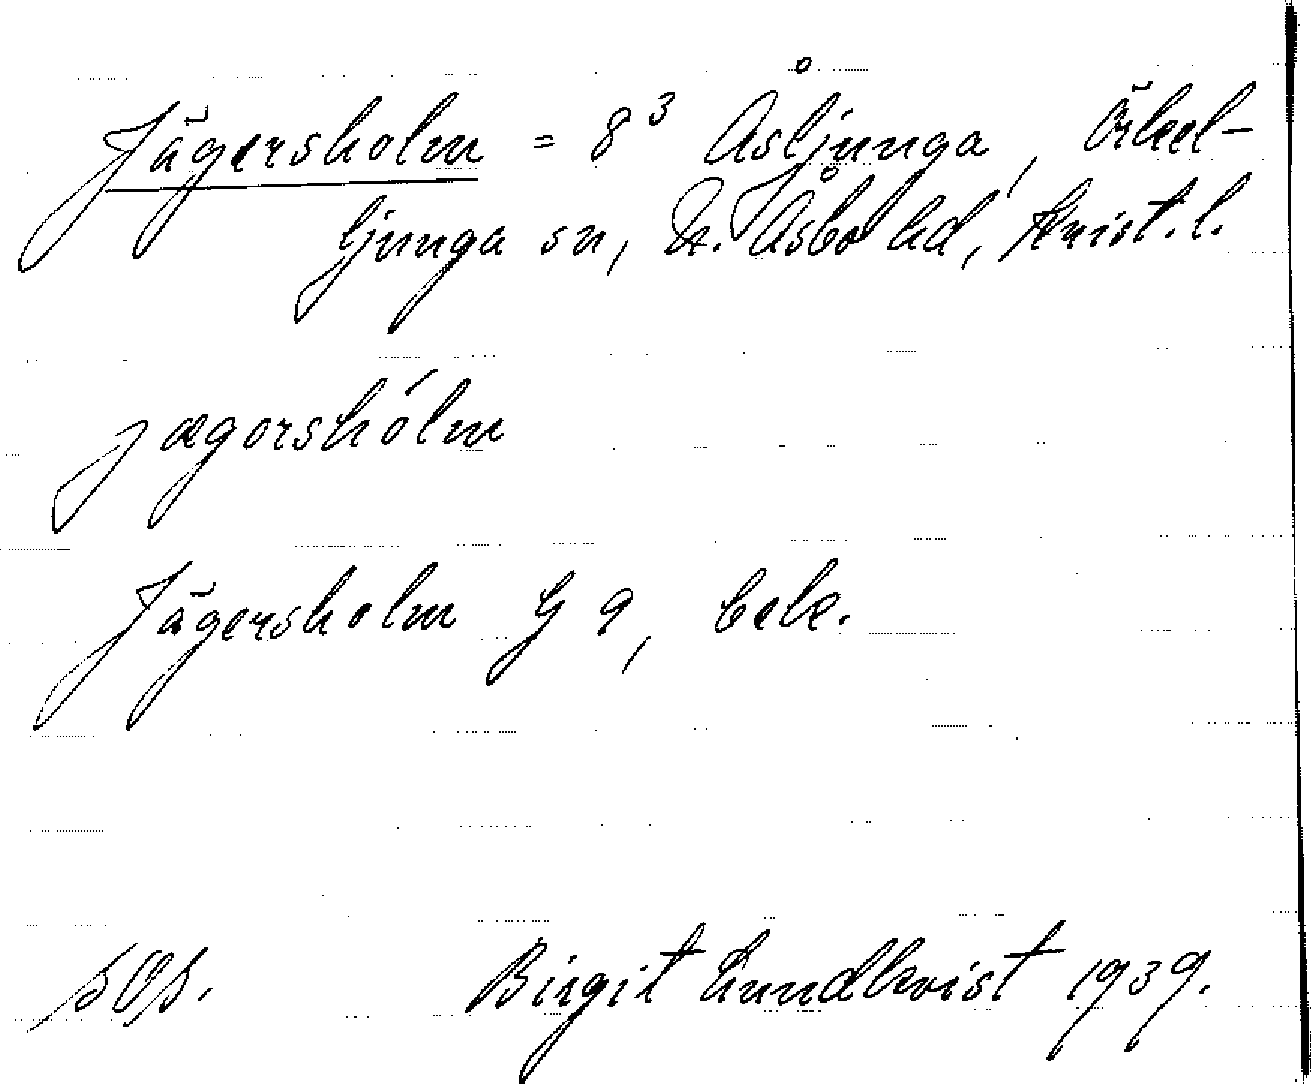 Jägersholm = 8³ Åsljunga, Örkel-
ljunga sn, N. Åsbo hd, Krist. l.
jægorshólm
Jägersholm G 9, bebe.
sOs.
Birgit Lundkvist 1939.